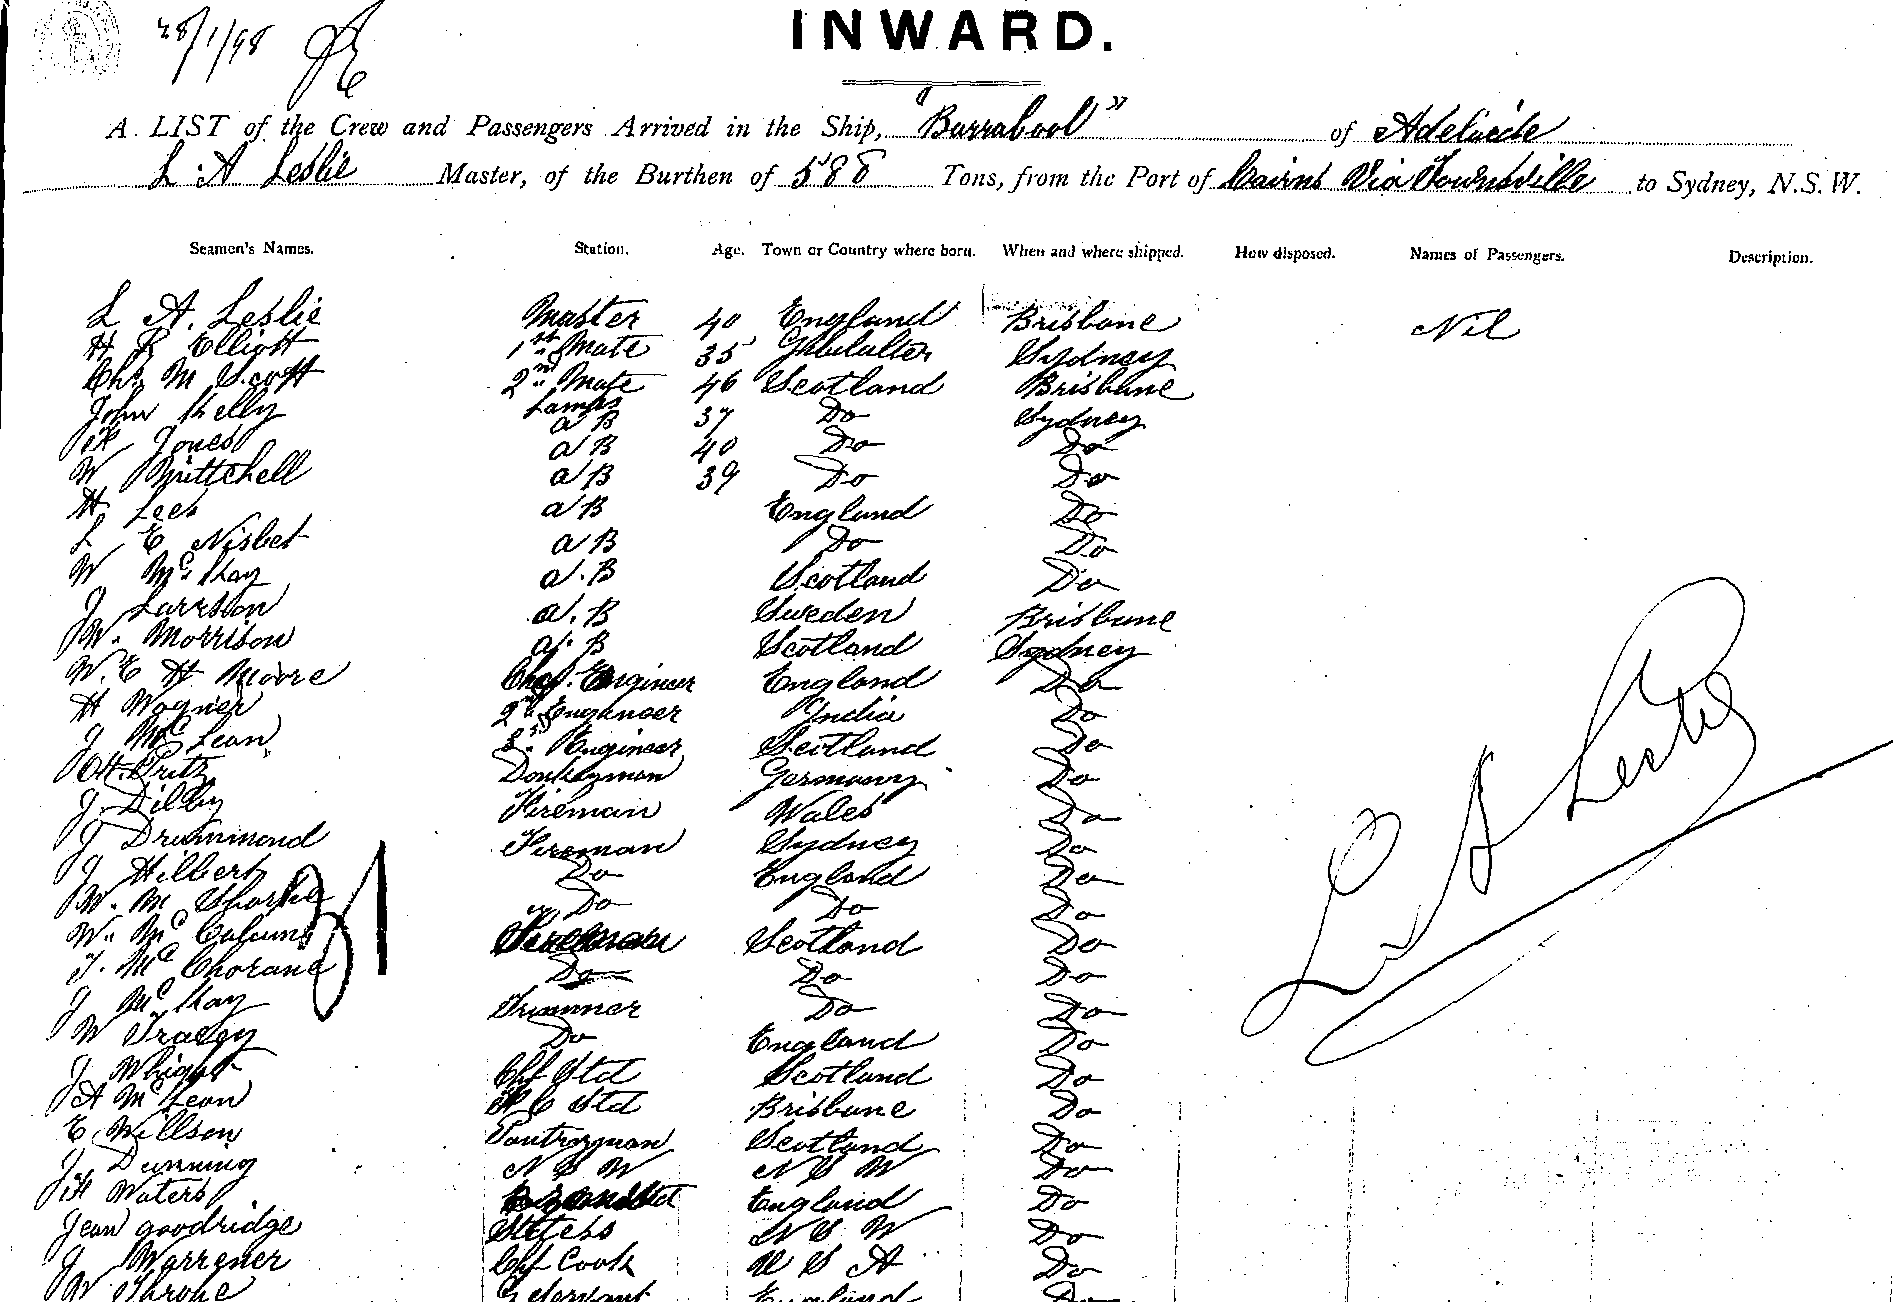 28/1/98
INWARD.
A LIST of the Crew and Passengers Arrived in the Ship, "Burrabool" of Adelaide
L A Leslie Master, of the Burthen of 588 Tons, from the Port of Cairns Via Townsville to Sydney, N.S.W.
Seamen's Names. Station. Age. Town or Country where born. When and where shipped. How disposed. Names of Passengers. Description.
L A. Leslie Master 40 England Brisbane Nil
H R Elliott 1st Mate 35 Gibralter Sydney
Chs M Scott 2nd Mate 46 Scotland Brisbane
John Kelly Lamps 37 Do Sydney
Jones a B 40 Do Do
W Mittchell a B 39 Do Do
H Lees a B England Do
L E Nisbet a B Do Do
W McKay a.B Scotland Do
J Larrson a.B Sweden Brisbane
W. Morrison a.B Scotland Sydney
W. E H Moore Chef. Engineer England Do
H Wagner 2nd Engineer India Do
J McLean 3rd Engineer Scotland Do
H. Fritz Donkeyman Germany Do
J. Dilby Fireman Wales Do
J Drummond Fireman Sydney Do
J Hilbert Do England Do
W. M Do Do Do
W. Mc Fireman Scotland Do
T. McChorane Do Do Do
J McKay Trimmer Do Do
W Tracey Do England Do
J Whright Chf Std Scotland Do
A McLean Std Brisbane Do
E. Willson Pantryman Scotland Do
J Dunning N S W N S W Do
Waters Std England Do
Jean goodridge Stess N S W Do
J Warrener Chf Cook U S A Do
W Thrope Servant England Do
31
L A Leslie